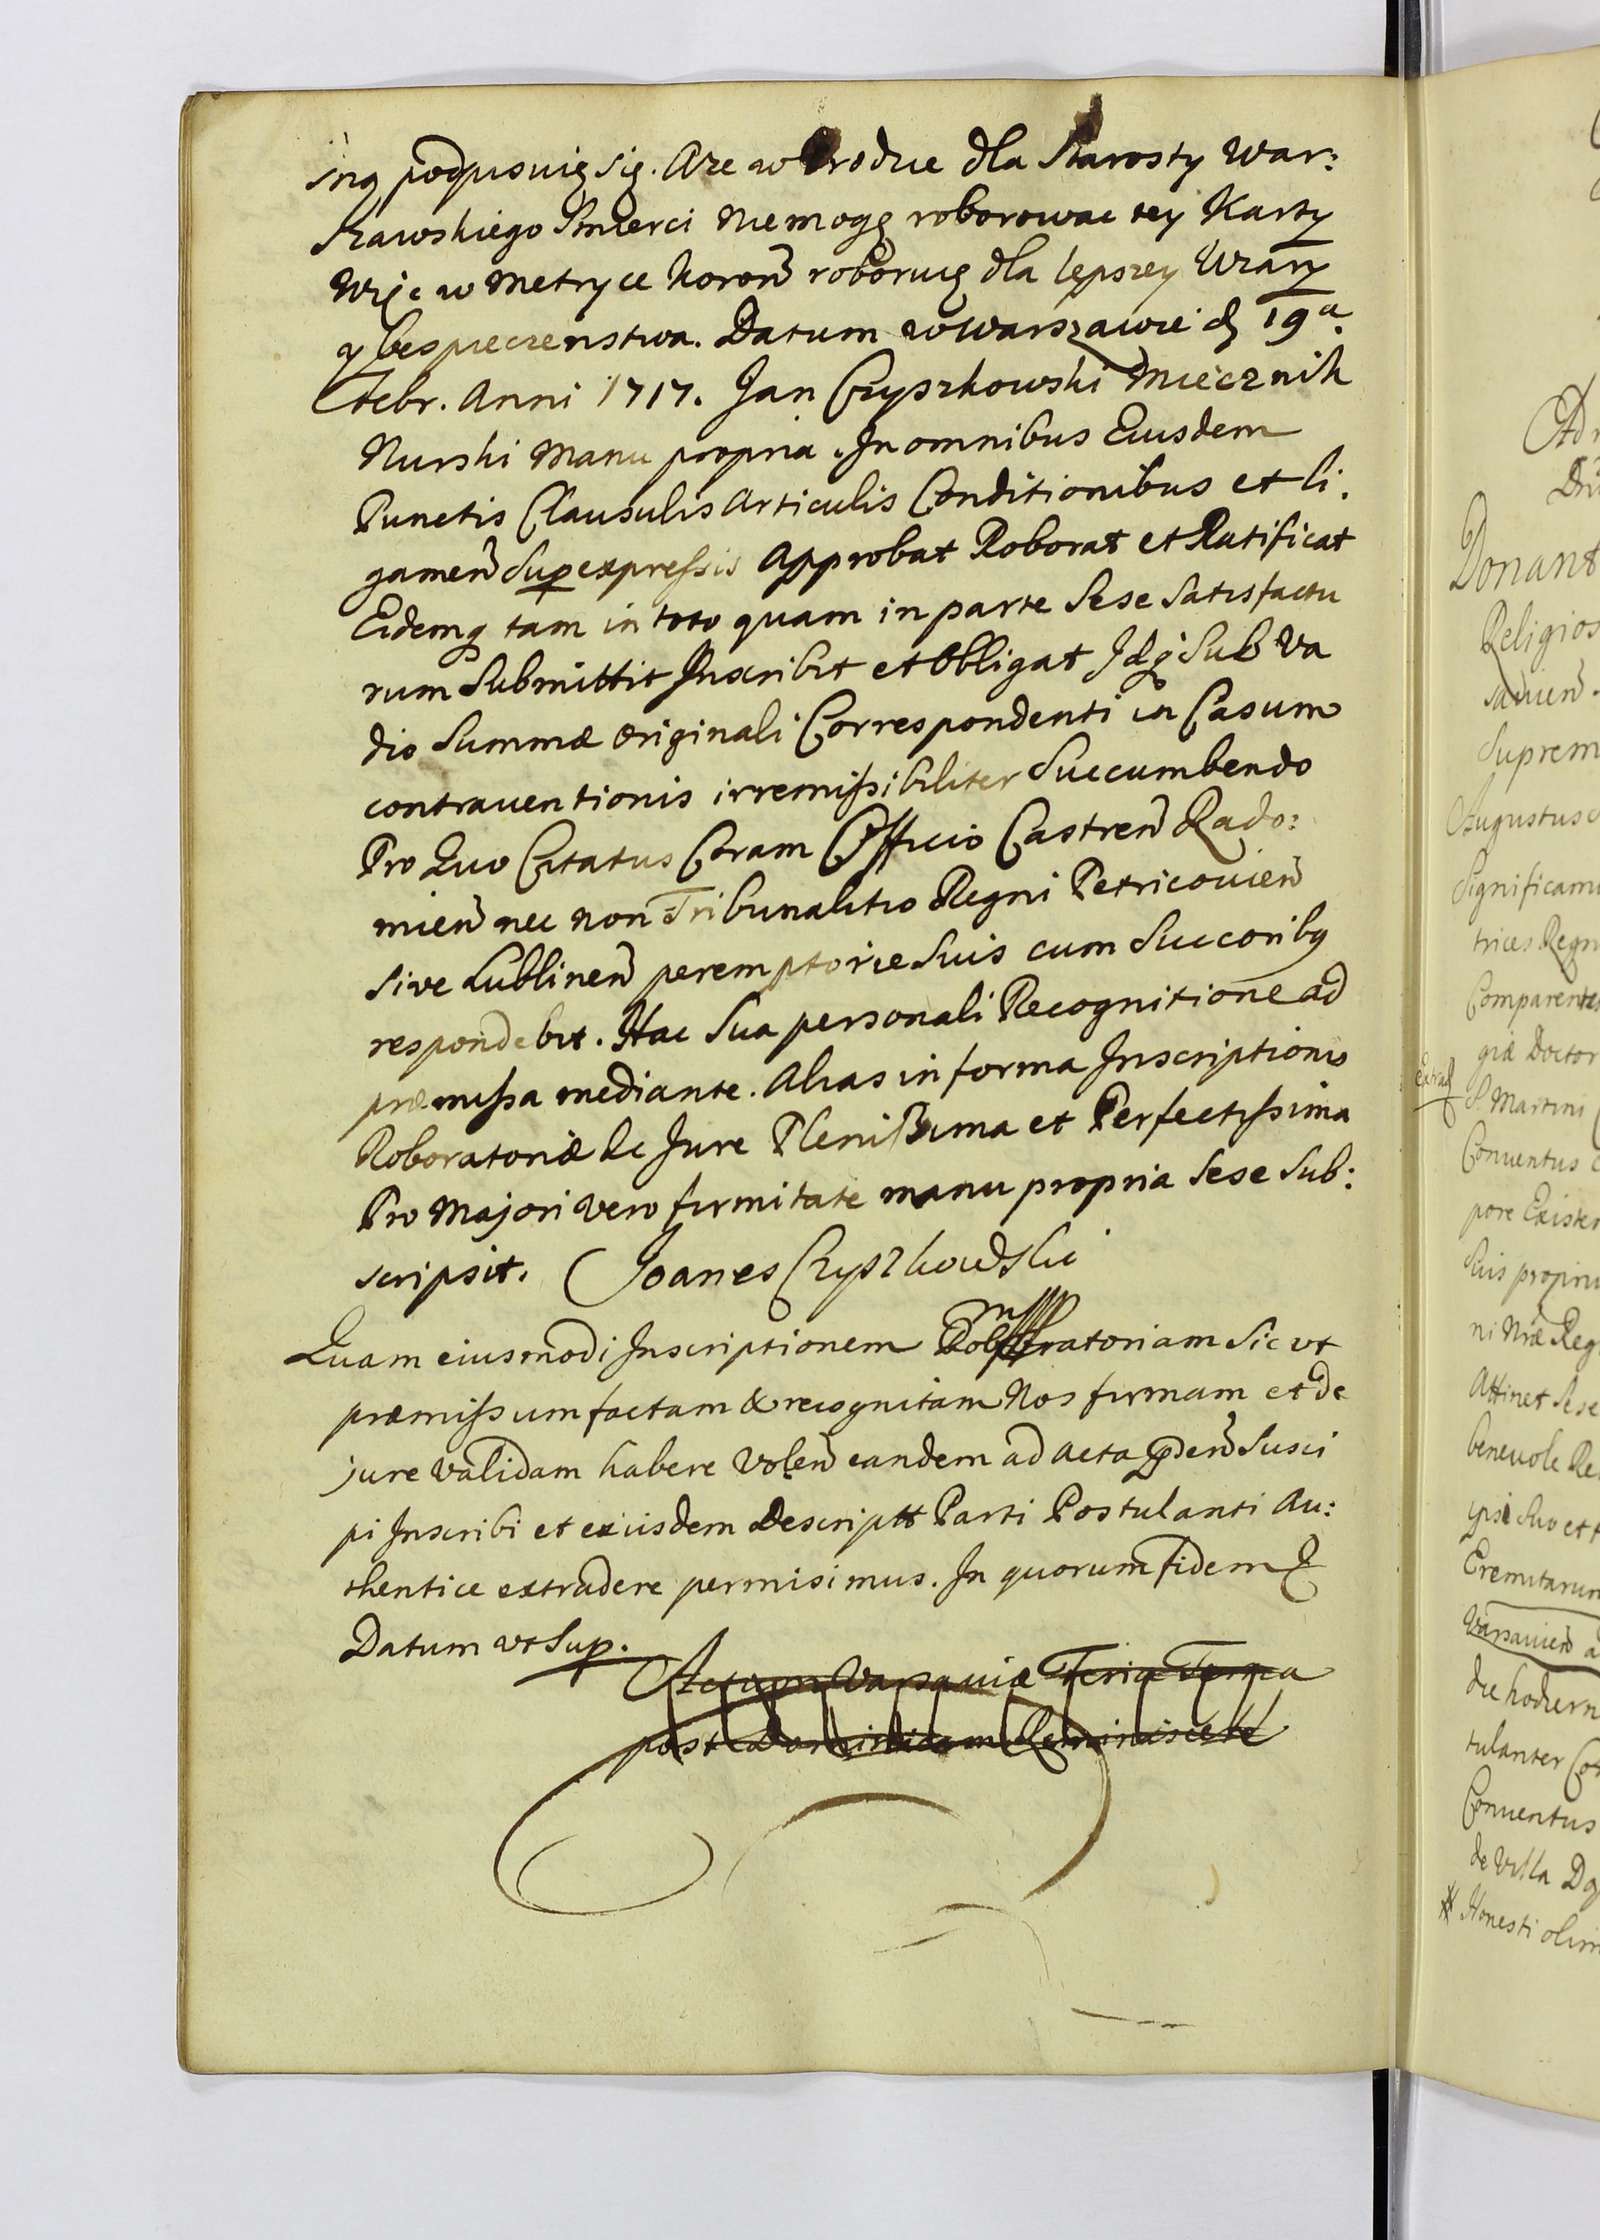 sną podpisuię się. A ze w Grodzie dla Starosty War:
szawskiego Smierci Nie mogę roborowac tey Karty
Więc w Metryce Koronñ roboruię dla lepszey Wiary
y bespieczenstwa. Datum w Warszawie d. 19a.
Febr. Anni 1717. Jan Czyszkowski Miecznik
Nurski Manu propria. In omnibus Eiusdem
Punctis Clausulis Articulis Conditionibus et li.
gameñ Sup expressis Approbat Roborat et Ratificat
Eidemq tam in toto quam in parte Sese Satisfactu
rum Submittit Inscribit et Obligat Idq Sub Va
dio Summæ Originali Correspondenti in Casum
contrauentionis irremissibiliter Succumbendo
Pro Quo Citatus Coram Officio Castreñ Rado:
mieñ nec non Tribunalitio Regni Petricouieñ
sive Lublineñ peremptorie Suis cum Succoribq
respondebit. Hac Sua personali Recognitione ad
præmissa mediante. Alias in forma Inscriptionis
Roboratoriæ de Jure Plenissima et Perfectissima
Pro Majori vero firmitate manu propria Sese Sub:
scripsit. Joanes Czyszkowski
Quam eiusmodi Inscriptionem Roboratoriam Sic vt
præmissum factam & recognitam Nos firmam et de
jure validam habere Voleñ eandem ad Acta pñdeñ Susci
pi Inscribi et exiisdem Descriptt Parti Postulanti Au:
thentice extradere permisimus. In quorum fidem &
Datum vt Sup.
Actum Varsaviæ Feria Tertia
post Dominicam Reminiscere
Donant
Religios
savień.
Suprem
Augustus
Significamu
trices Regn
Comparentes
giæ Doctor
S. Martini
Conventus
pore Existen
Suis propriu
ni Nræ Reg
Attinet Sese
benevole Re
Suo et
Eremitarum
Varsavień a
die hodiern
tulanter Co
Conventus
de Villa
Honesti olim